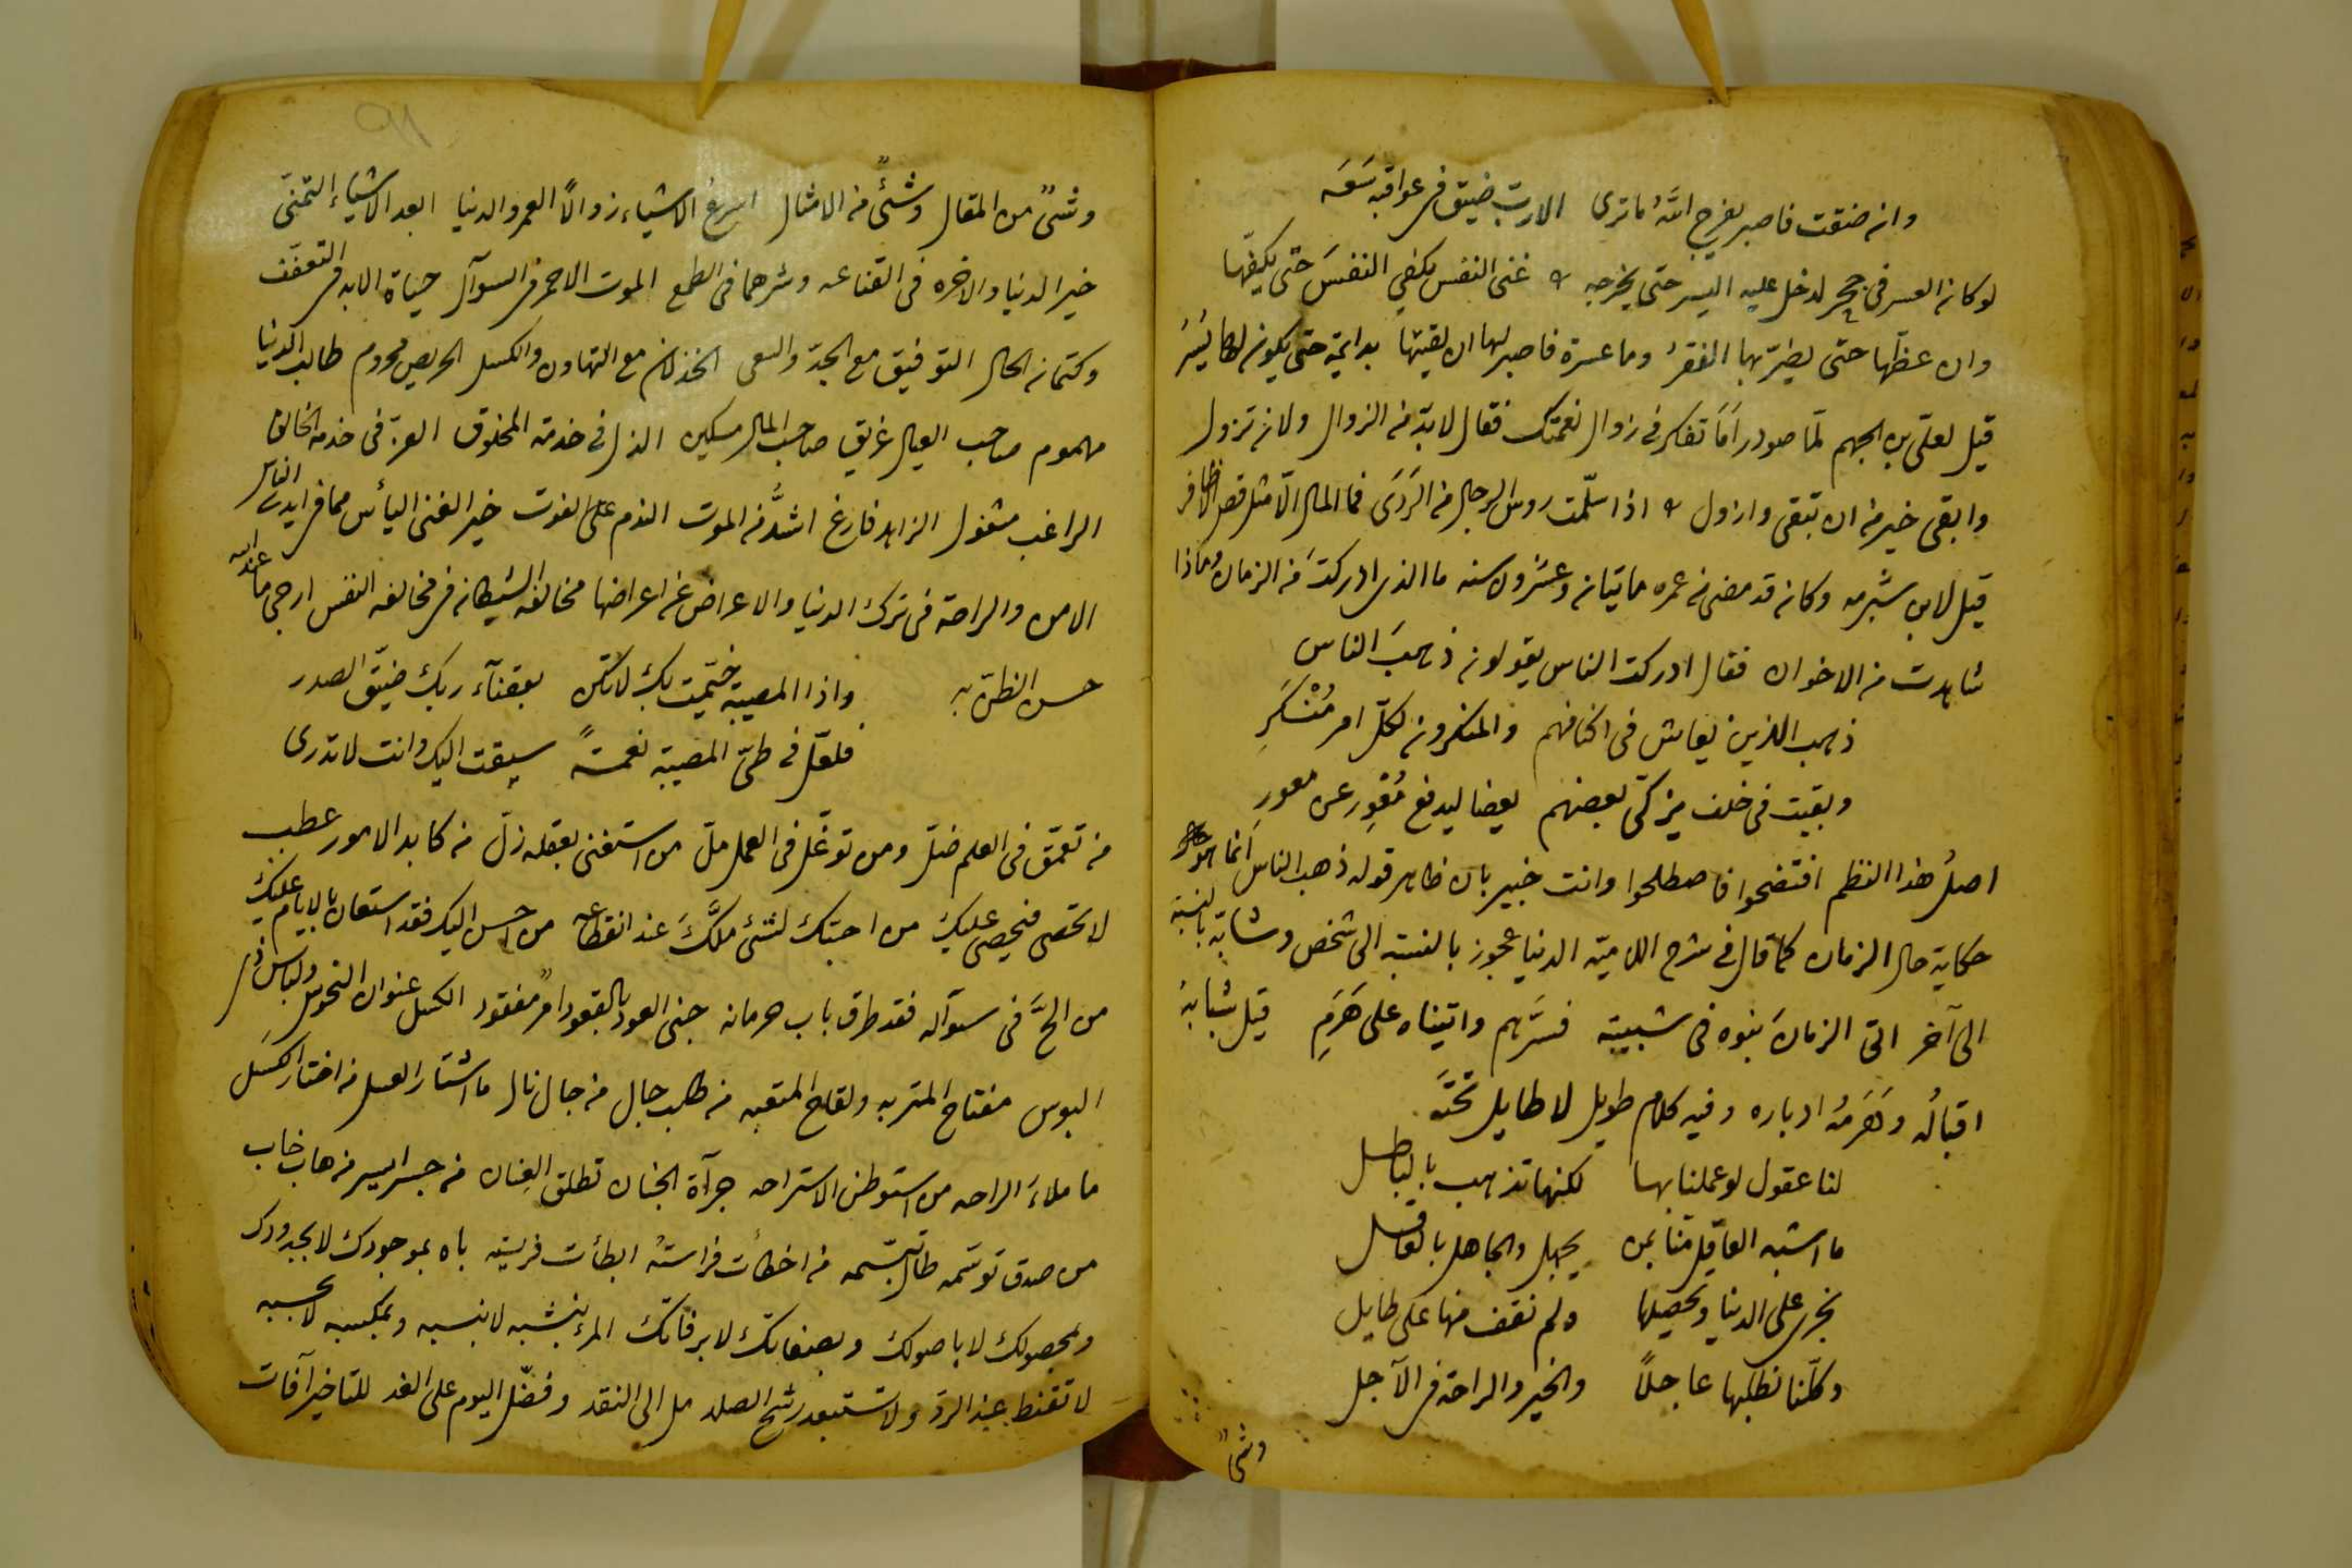 وان ضقت فاصبر يفرج الله ما ترى الا رب ضيق في عواقبه سعه
لو كان العسر في جحر لدخل عليه اليسر حتى يخرجه غنى النفس يكفي النفس حتى يكفها
وان عضها حتى يضر بها الفقر وما عسرة فاصبر لها ان لقيتها بدائمة حتى يكون لها يسر
قيل لعلي بن الجهم لما صودر أما تفكر في زوال نعمتك فقال لا بد من الزوال ولان تزول
وابقى خير من ان تبقى وازول اذا سلمت روس الرجال من الردى فما المال الا مثل قص الاظافر
قيل لابن شبرمه وكان قد مضى من عمره مايتان وعشرون سنه ما الذي ادركت من الزمان وماذا
شاهدت من الاخوان فقال ادركت الناس يقولون ذهب الناس
ذهب الذين يعاش في اكنافهم والمنكرون لكل امر منكر
وبقيت في خلف يزكى بعضهم بعضا ليدفع معور عن معور
اصل هذا النظم افتضحوا فاصطلحوا وانت خبير بان ظاهر قوله ذهب الناس انما هو
حكاية حال الزمان كما قال في شرح اللاميّة الدنيا عجوز بالنسبه الى شخص وشابّة بالنسبة
الى آخر اتى الزمان بنوه في شبيبته فسرّهم واتيناه على هرم قيل شبابهُ
اقبالُه وهَرَمُه ادباره وفيه كلام طويل لا طايل تحتَه
لنا عقول لو عملنا بها لكنها تذهب بالباطل
ما اشبه العاقل منّا بمن يجهل والجاهل بالعاقل
نجري على الدنيا وتحصيلها ولم نقف منها على طايل
وكلّنا نطلبها عاجلًا والخير والراحة في الآجل
وشئٌ
٩١
وشئٌ من المقال وشئٌ من الامثال اسرع الاشياء زوالًا العمر والدنيا ابعد الاشياء التمنّي
خير الدنيا والاخره في القناعه وشرهما في الطمع الموت الاحمر في السوآل حياة الابد في التعفف
وكتمان الحال التوفيق مع الجدّ والسعى الخذلان مع التهاون والكسل الحريص محروم طالب الدنيا
مهموم صاحب العيال غريق صاحب المال مسكين الذل في خدمة المخلوق العزّ في خدمة الخالق
الراغب مشغول الزاهد فارغ اشدُّ من الموت الندم على الفوت خير الغنى اليأس مما في ايدي الناس
الامن والراحة في ترك الدنيا والاعراض عن اعراضها مخالفة الشيطان في مخالفه النفس ارجى ما عند الله
حسن الظن به واذا المصيبة خيّمت بك لا تكن بقضآء ربك ضيّق الصدر
فلعلّ في طيّ المصيبة نعمةً سيقت اليك وانت لا تدرى
من تعمّق في العلم ضلّ ومن توغّل في العمل ملّ من استغنى بعقله زلّ من كابد الامور عطب
لا تحصى فيحصى عليك من احبّك لشئ ملَّكَ عند انقطاعه من احسن اليك فقد استعان بالايام عليك
من الحَّ في سوآله فقد طرق باب حرمانه جنى العود بالقعود امرٌ مفقود الكسل عنوان النحوس ولباس ذي
البوس مفتاح المتربه ولقاح المتعبه من طلب جال من جال نال ما اشتار العسل من اختار الكسل
ما ملاء الراحه من استوطن الاستراحه جرآة الجنان تطلق العِنان من جسر ايسر من هاب خاب
من صدق توسّمه طال تبسّمه من اخطأت فراستُه ابطأت فريسته باه بموجودك لا بجدودك
وبمحصولك لا باصولك وبصفاتك لا برفاتك المرء بنشبه لا بنسبه وبمكسبه لا بحسبه
لا تقنط عند الردّ ولا تستبعد رشح الصلد مل الى النقد وفضّل اليوم على الغد للتاخير آفات